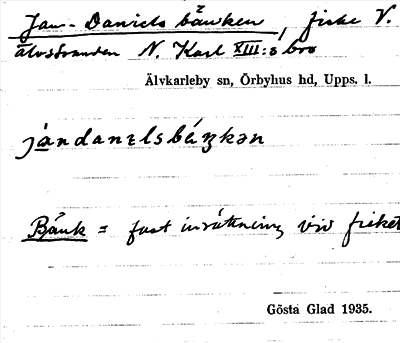 Jan-Daniels bänken, fiske V.
älvstranden N. Karl XIII:s bro
Älvkarleby sn, Örbyhus hd, Upps. l.
Bänk = fast inrättning vid fisket
Gösta Glad 1935.